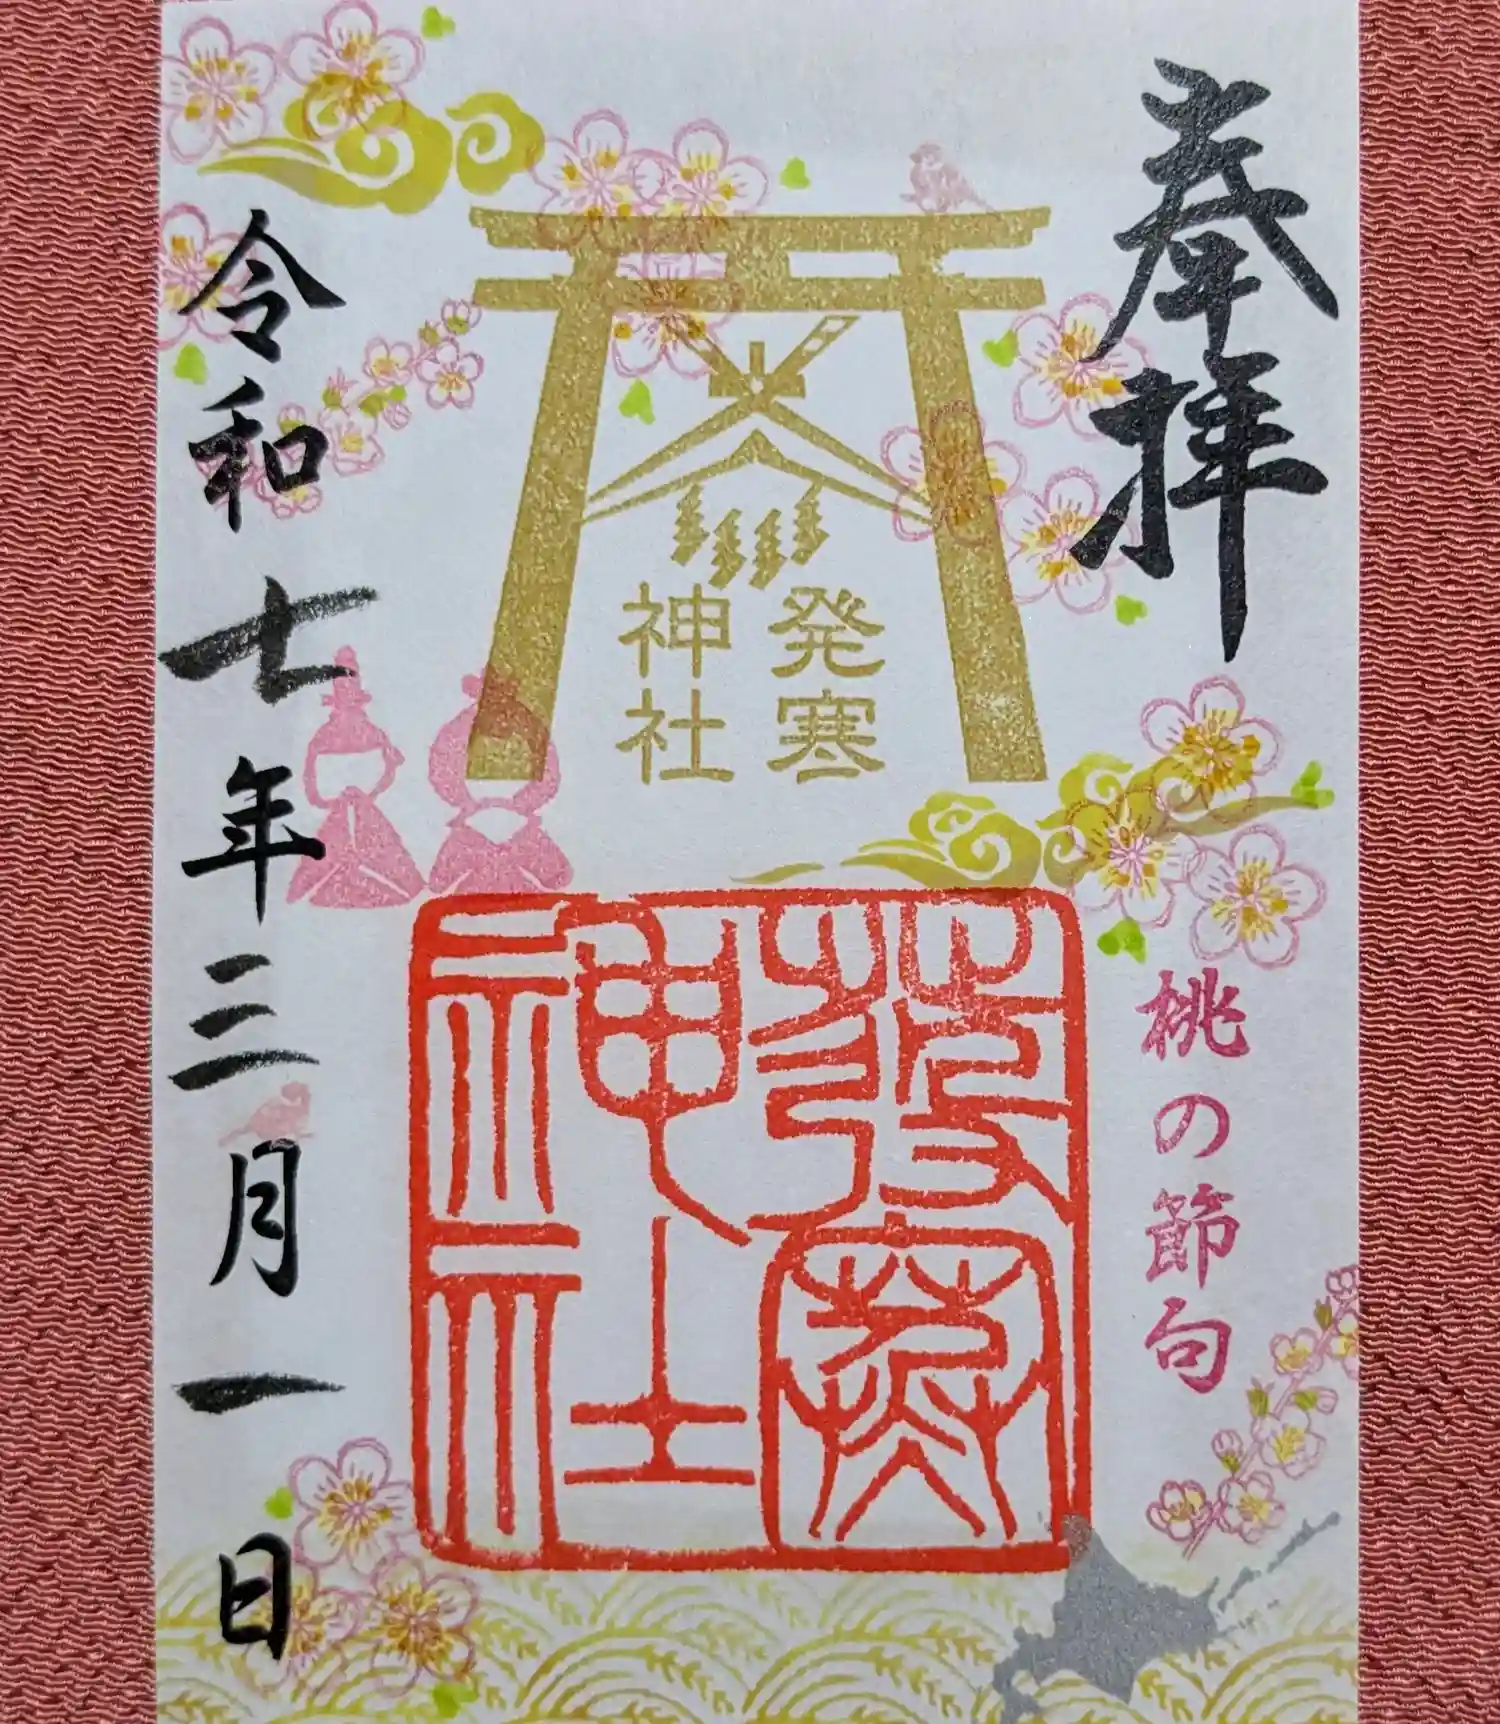 奉拝
発寒
神社
桃の節句
發寒
神社
令和七年三月一日